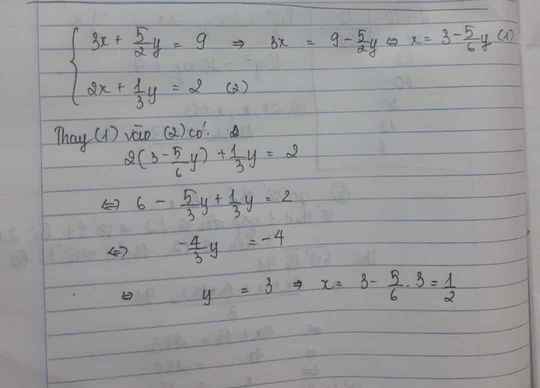 { 3x + 5/2 y = 9 ⇒ 3x = 9 - 5/2 y ⇔ x = 3 - 5/6 y (1)
2x + 1/3 y = 2 (2)
Thay (1) vào (2) có:
2(3 - 5/6 y) + 1/3 y = 2
⇔ 6 - 5/3 y + 1/3 y = 2
⇔ -4/3 y = -4
⇔ y = 3 ⇒ x = 3 - 5/6 . 3 = 1/2